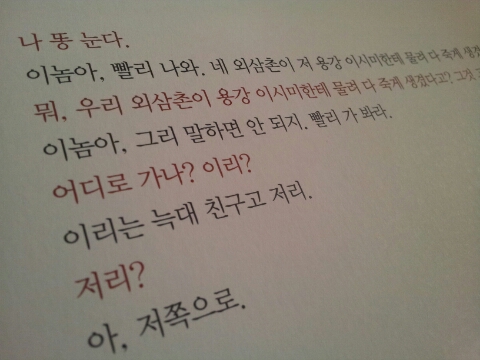 나 똥 눈다.
이놈아, 빨리 나와. 네 외삼촌이 저 용강 이시미한테 물려 다 죽게 생겼
뭐, 우리 외삼촌이 용강 이시미한테 물려 다 죽게 생겼다고?, 그것
이놈아, 그리 말하면 안 되지. 빨리 가 봐라.
어디로 가나? 이리?
이리는 늑대 친구고 저리.
저리?
아, 저쪽으로.